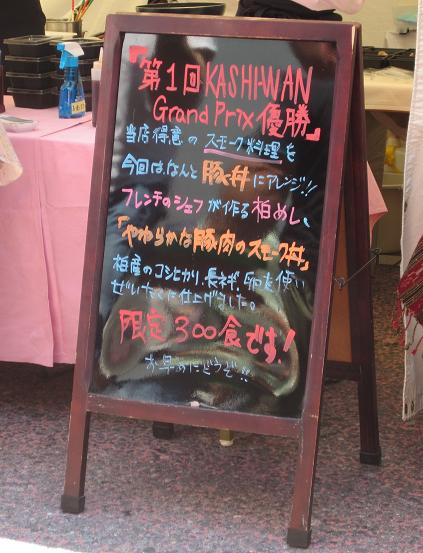 『第1回 KASHI-WAN
Grand Prix 優勝』
当店得意の スモーク料理を
今回は、なんと 豚丼 にアレンジ!!
フレンチのシェフ が作る 柏めし、
「やわらかな豚肉のスモーク丼」
柏産のコシヒカリ、長ネギ、卵を使い
ぜいたくに仕上げました。
限定 300食です!
お早めにどうぞ!!